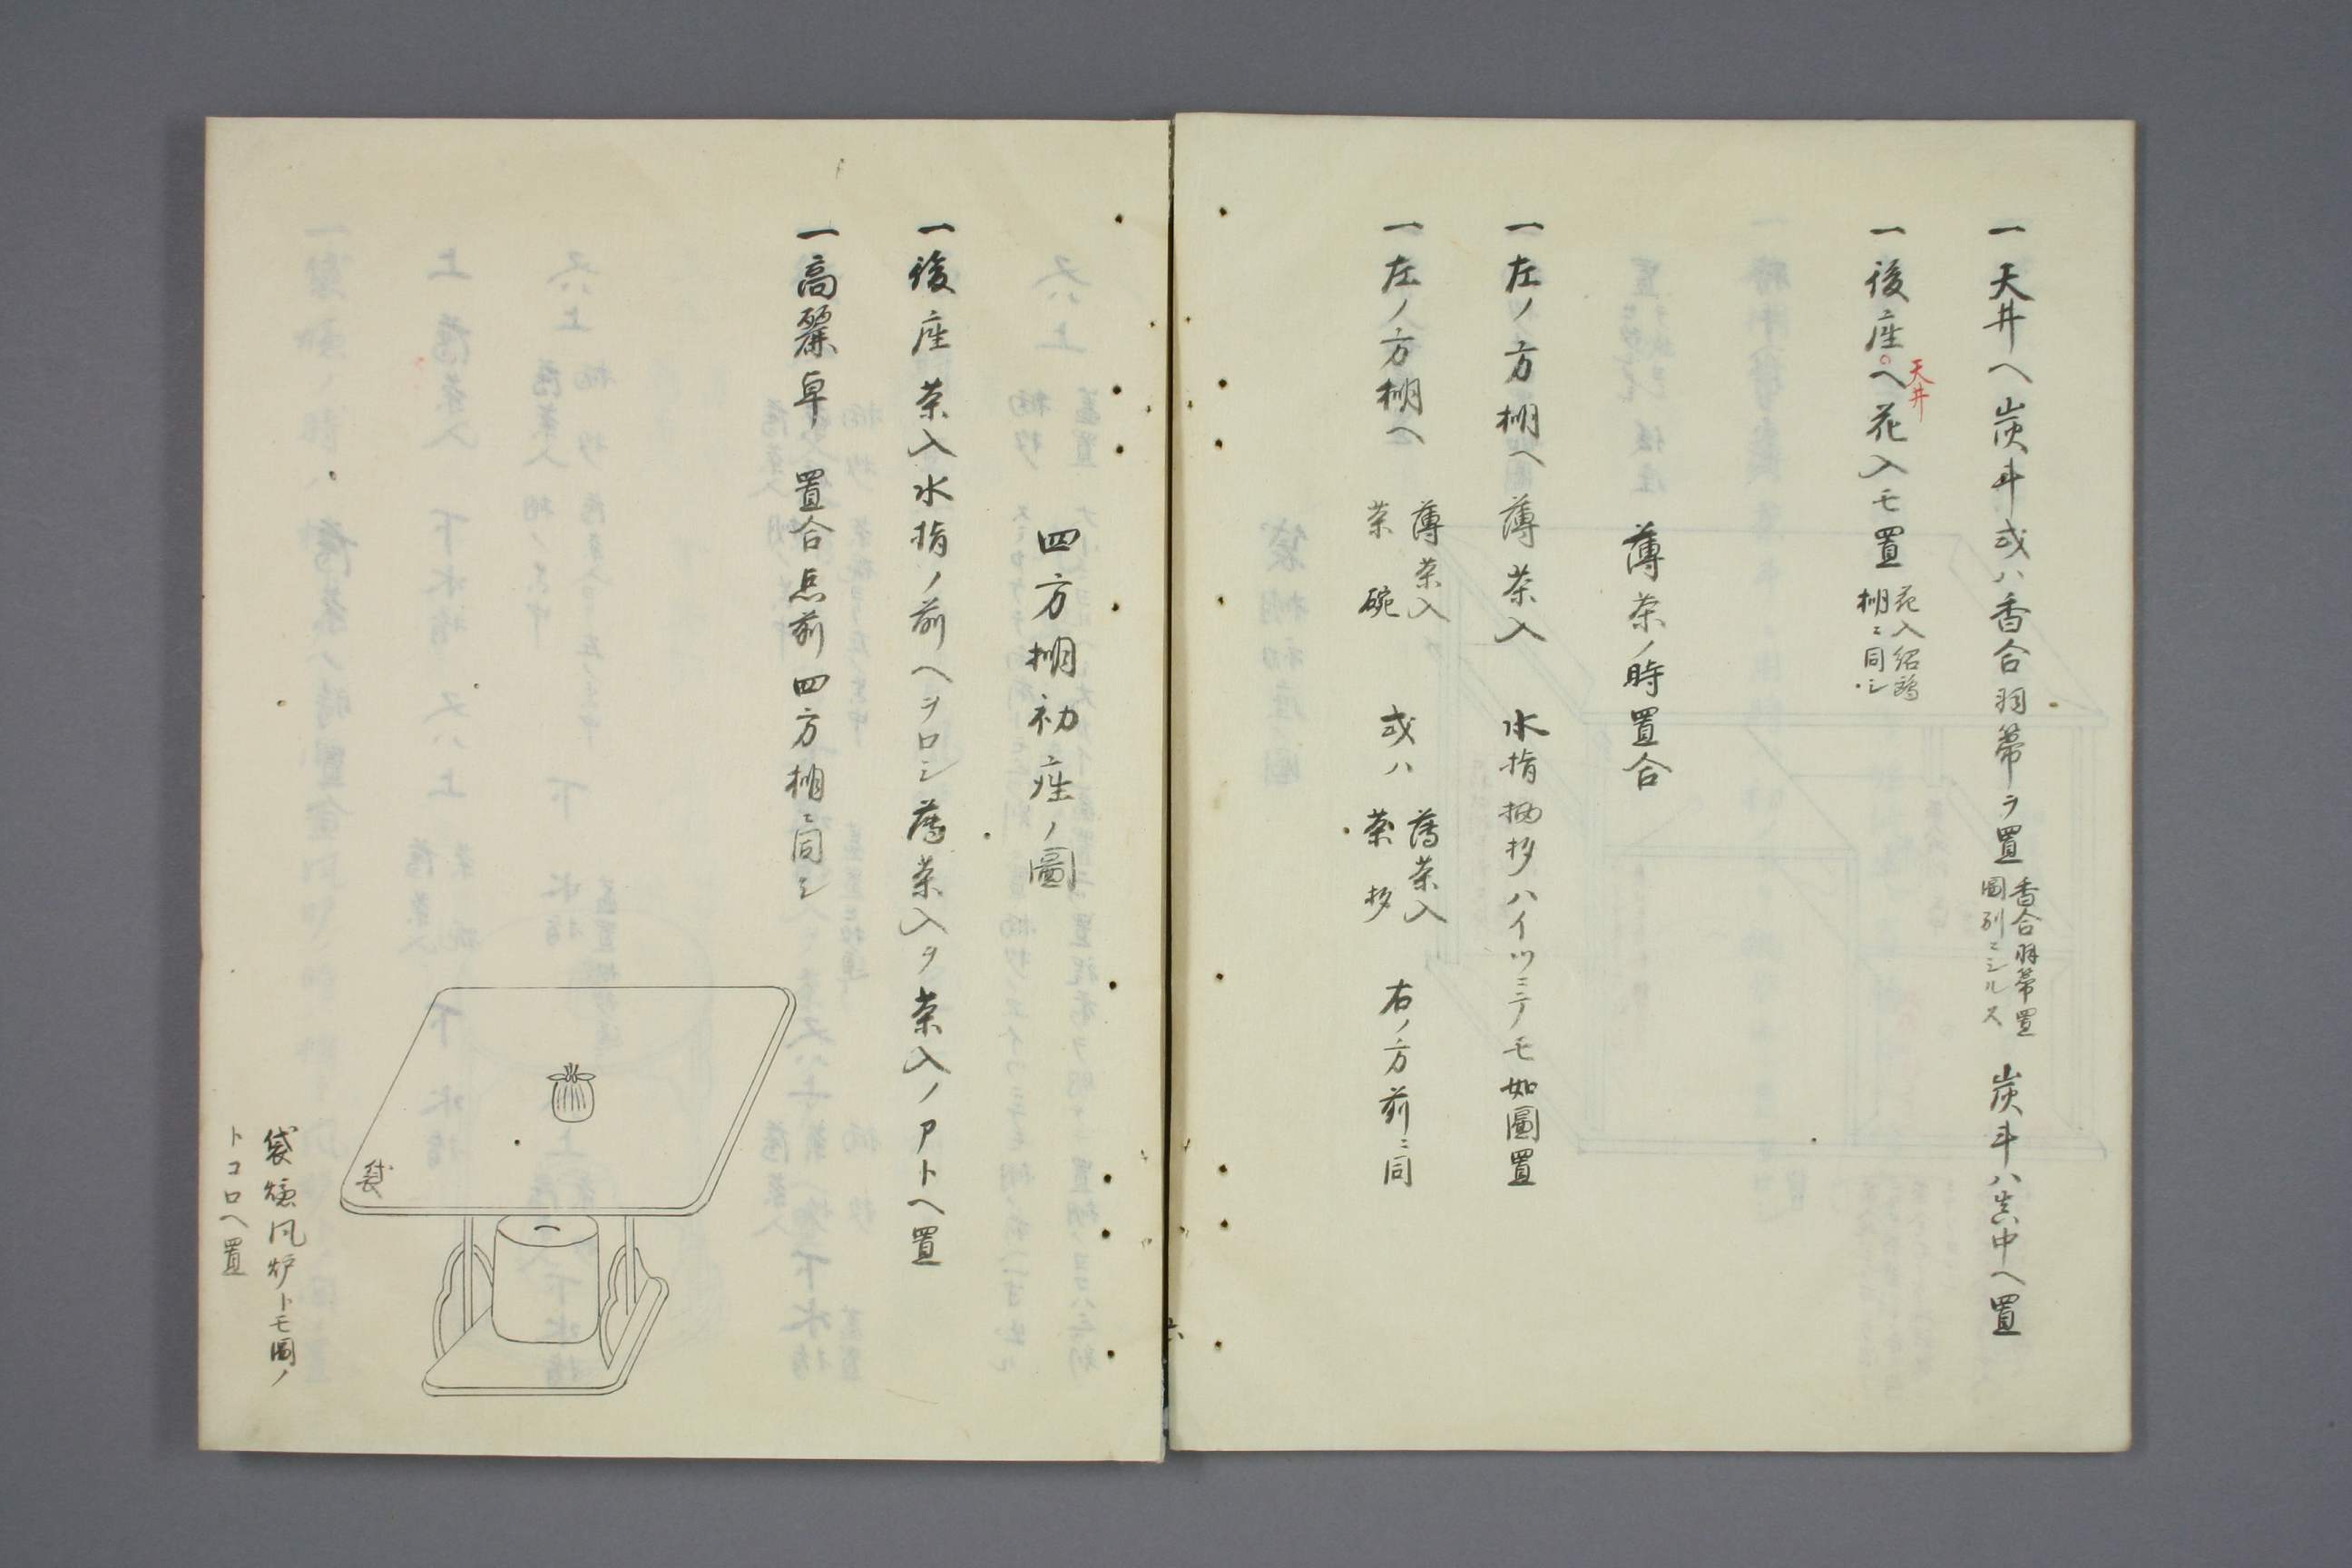 一天井ヘ炭斗或ハ香合羽箒ヲ置
香合羽箒置
圖別ニシルス
炭斗ハ真中ヘ置
一後座ヘ花入モ置
天井
花入紹鴎
棚ニ同シ
薄茶ノ時置合
一左ノ方棚ヘ薄茶入 水指柄杓ハイツニテノモ如圖置
一左ノ方棚ヘ
薄茶入
茶碗
或ハ
薄茶入
茶杓
右ノ方前ニ同
四方棚初座ノ圖
一後座茶入水指ノ前ヘヲロシ薄茶入ヲ茶入ノアトヘ置
一高麗卓 置合点前四方棚ニ同シ
袋
袋爐風炉トモ圖ノ
トコロヘ置